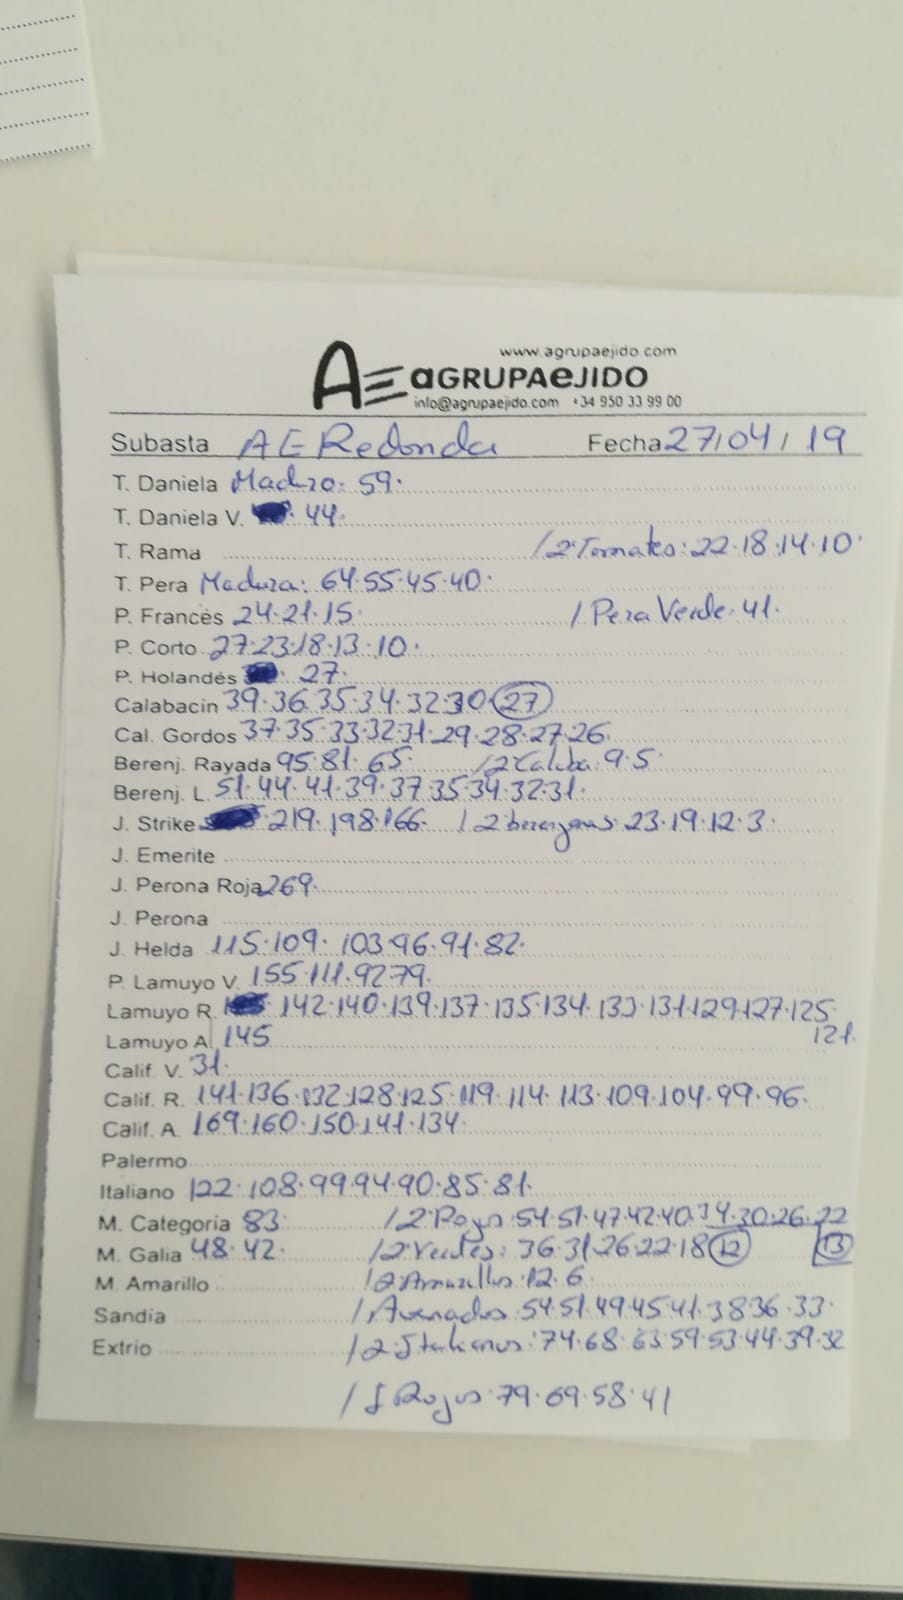 www.agrupaejido.com
AE aGRUPAeJIDO
info@agrupaejido.com +34 950 33 99 00
Subasta AE Redonda Fecha 27/04/19
T. Daniela Maduro: 59.
T. Daniela V. 44.
T. Rama /2ª Tomates: 22.18.14.10.
T. Pera Madura: 64.55.45.40.
P. Francés 24.21.15. / Pera Verde: 41.
P. Corto 27.23.18.13.10.
P. Holandés 27.
Calabacin 39.36.35.34.32.30.27
Cal. Gordos 37.35.33.32.31.29.28.27.26.
Berenj. Rayada 95.81.65. /2 Calaba: 9.5.
Berenj. L. 51.44.41.39.37.35.34.32.31.
J. Strike 219.198.166. /2 berenjenas: 23.19.12.3.
J. Emerite
J. Perona Roja 269.
J. Perona
J. Helda 115.109.103.96.91.82.
P. Lamuyo V. 155.111.92.79.
Lamuyo R. 142.140.139.137.135.134.133.131.129.127.125.
121.
Lamuyo A. 145
Calif. V. 31.
Calif. R. 141.136.132.128.125.119.114.113.109.104.99.96.
Calif. A. 169.160.150.141.134.
Palermo
Italiano 122.108.99.94.90.85.81.
M. Categoría 83. /2 Rojos: 54.51.47.42.40.34.30.26.22
M. Galia 48.42. /2 Verdes: 36.31.26.22.18 12 13
M. Amarillo /2 Amarillos: 12.6.
Sandía / Asurados: 54.51.49.45.41.38.36.33.
Extrio /2 Italianos: 74.68.63.59.53.44.39.32
Rojos: 79.69.58.41